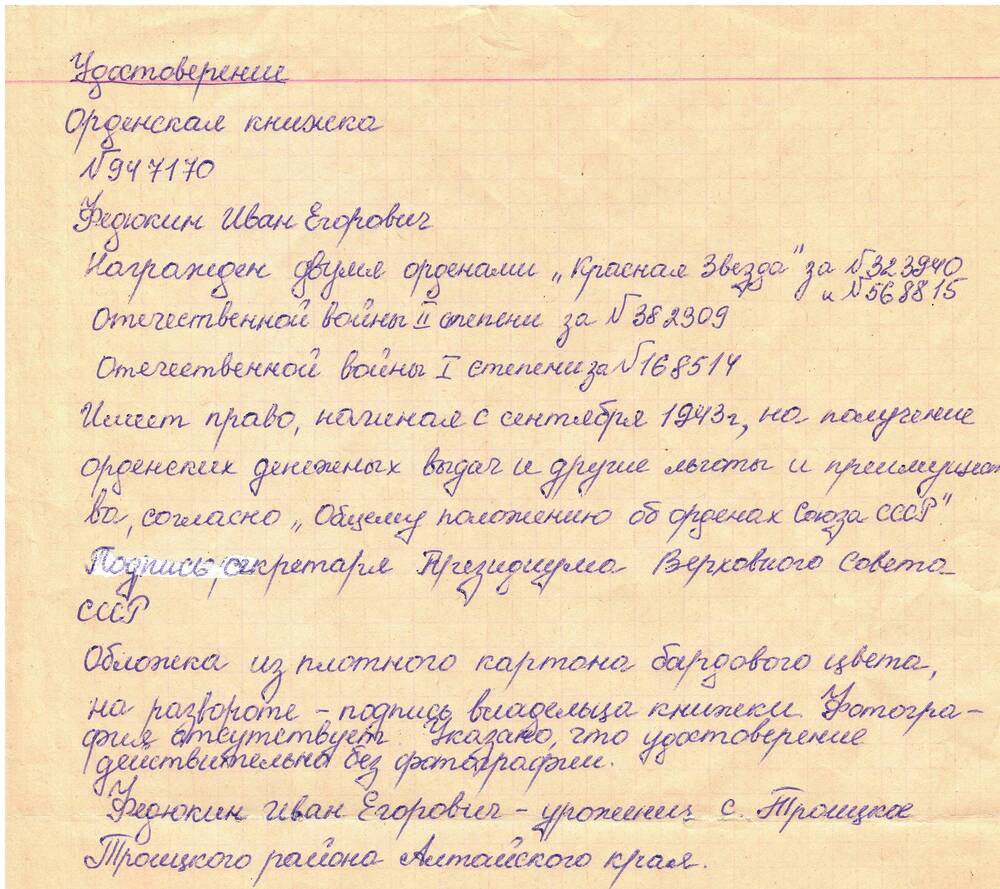 Удостоверение
Орденская книжка
№947170
Федюкин Иван Егорович
Награжден двумя орденами „Красная Звезда" за №323940
и №568815
Отечественной войны II степени за №382309
Отечественной войны I степени за №168514
Имеет право, начиная с сентября 1943г, на получение
орденских денежных выдач и другие льготы и преимущест
ва, согласно „Общему положению об орденах Союза СССР"
Подпись секретаря Президиума Верховного Совета
СССР
Обложка из плотного картона бардового цвета,
на развороте – подпись владельца книжки. Фотогра–
фия отсутствует. Указано, что удостоверение
действительно без фотографии.
Федюкин Иван Егорович – уроженец с. Троицкое
Троицкого района Алтайского края.